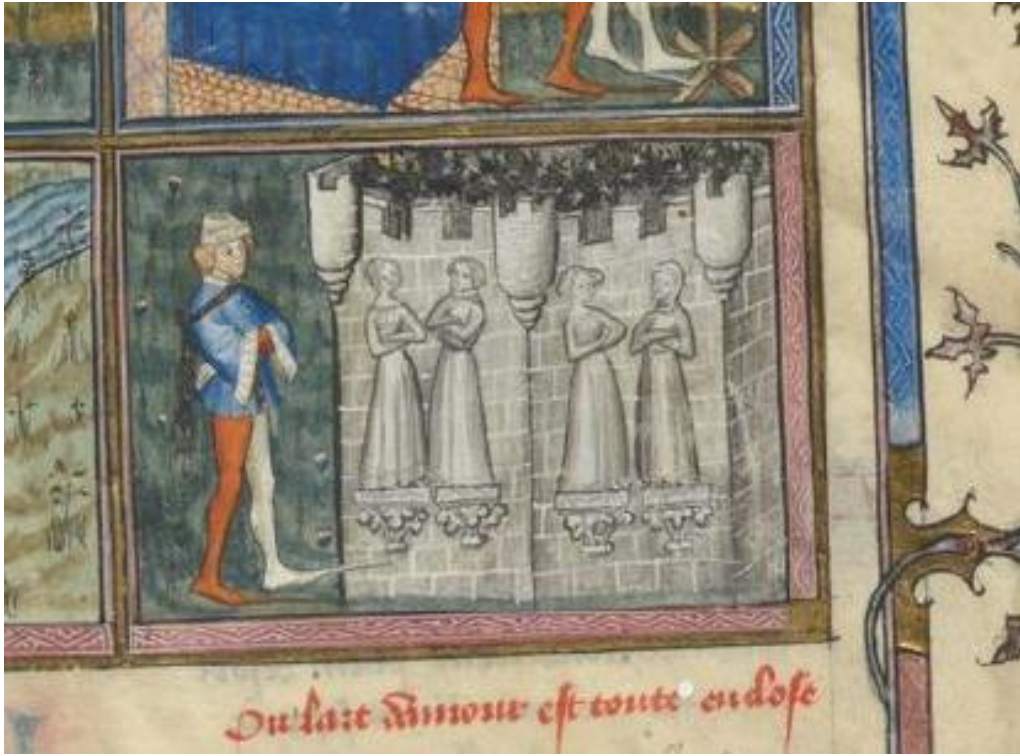 Ou lart damour est toute enclose